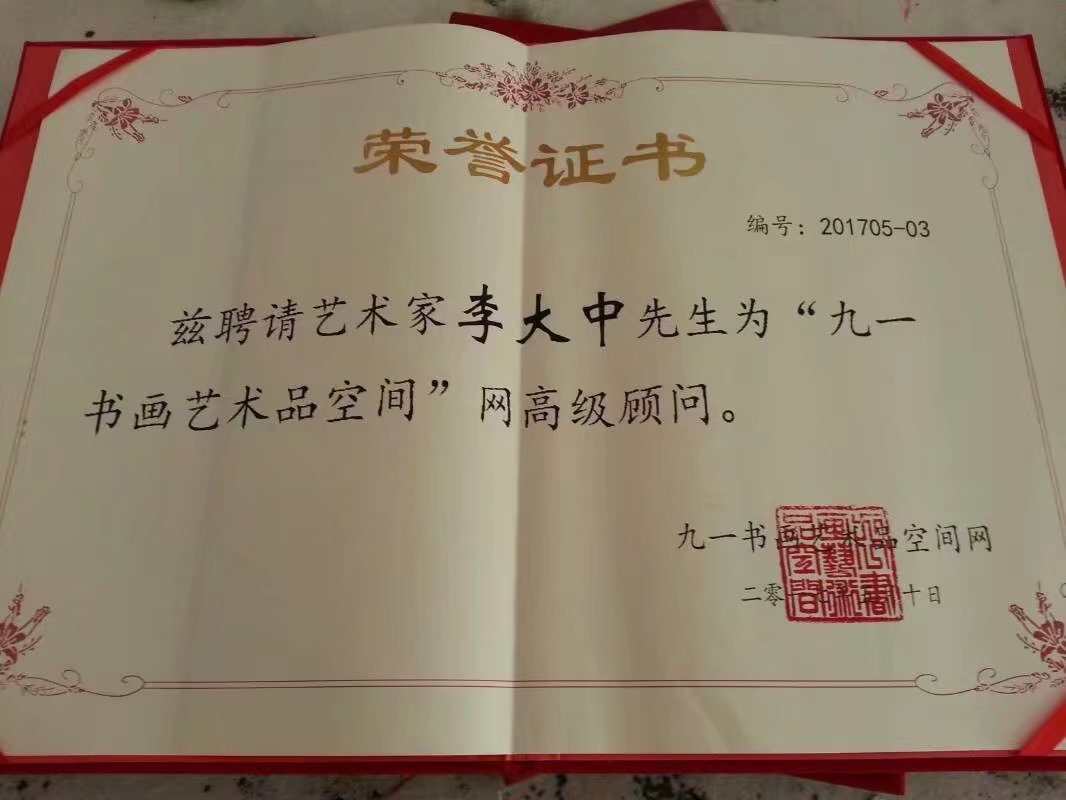 荣誉证书
编号：201705-03
兹聘请艺术家李大中先生为“九一
书画艺术品空间”网高级顾问。
九一书画艺术品空间网
二零一 十日